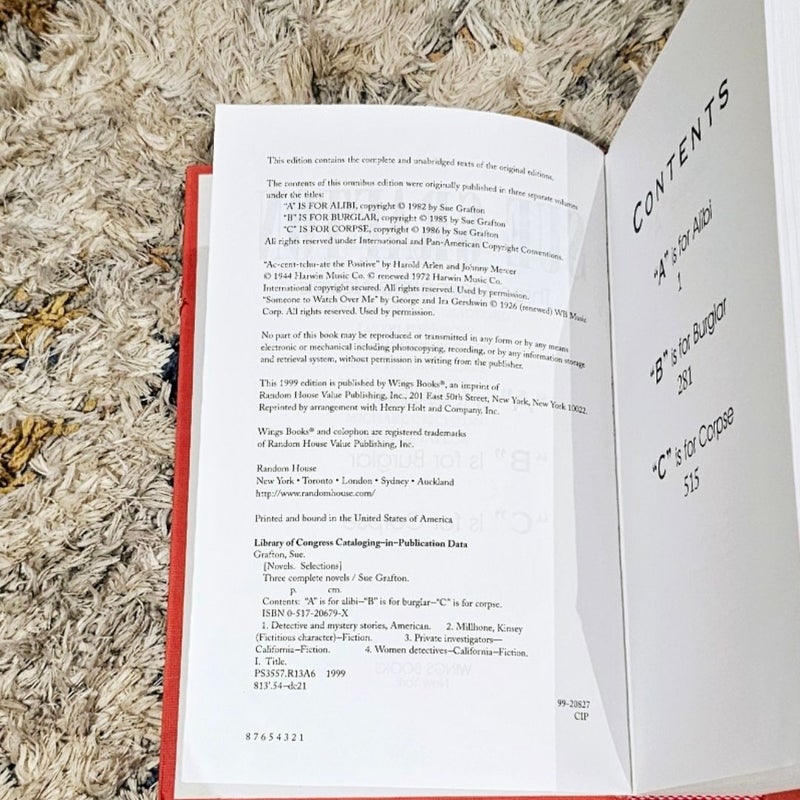 This edition contains the complete and unabridged texts of the original editions.
The contents of this omnibus edition were originally published in three separate volumes
under the titles:
"A" IS FOR ALIBI, copyright © 1982 by Sue Grafton
"B" IS FOR BURGLAR, copyright © 1985 by Sue Grafton
"C" IS FOR CORPSE, copyright © 1986 by Sue Grafton
All rights reserved under International and Pan-American Copyright Conventions.
"Ac-cent-tchu-ate the Positive" by Harold Arlen and Johnny Mercer
© 1944 Harwin Music Co. © renewed 1972 Harwin Music Co.
International copyright secured. All rights reserved. Used by permission.
"Someone to Watch Over Me" by George and Ira Gershwin © 1926 (renewed) WB Music
Corp. All rights reserved. Used by permission.
No part of this book may be reproduced or transmitted in any form or by any means
electronic or mechanical including photocopying, recording, or by any information storage
and retrieval system, without permission in writing from the publisher.
This 1999 edition is published by Wings Books®, an imprint of
Random House Value Publishing, Inc., 201 East 50th Street, New York, New York 10022.
Reprinted by arrangement with Henry Holt and Company, Inc.
Wings Books® and colophon are registered trademarks
of Random House Value Publishing, Inc.
Random House
New York • Toronto • London • Sydney • Auckland
http://www.randomhouse.com/
Printed and bound in the United States of America
Library of Congress Cataloging-in-Publication Data
Grafton, Sue.
[Novels. Selections]
Three complete novels / Sue Grafton.
p. cm.
Contents: "A" is for alibi—"B" is for burglar—"C" is for corpse.
ISBN 0-517-20679-X
1. Detective and mystery stories, American. 2. Millhone, Kinsey
(Fictitious character)—Fiction. 3. Private investigators—
California—Fiction. 4. Women detectives—California—Fiction.
I. Title.
PS3557.R13A6 1999
813'.54—dc21
99-20827
CIP
8 7 6 5 4 3 2 1
CONTENTS
"A" is for Alibi
1
"B" is for Burglar
281
"C" is for Corpse
515